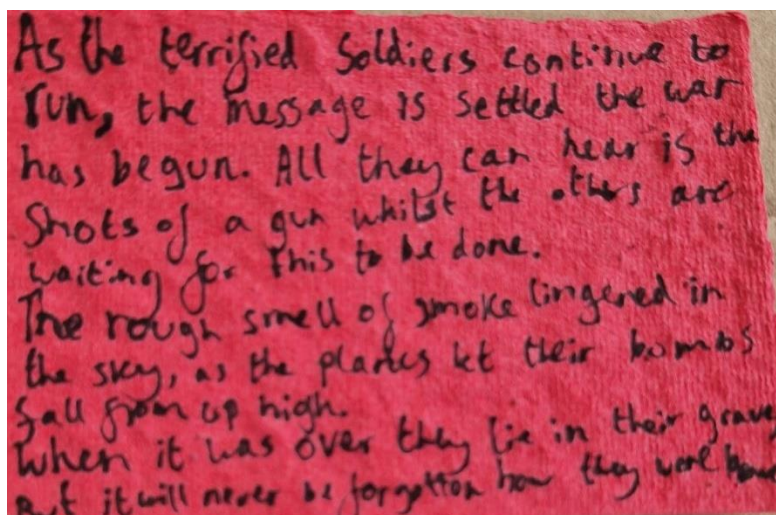 As the terrified Soldiers continue to
run, the message is settled the war
has begun. All they can hear is the
Shots of a gun whilst the others are
waiting for this to be done.
The rough smell of smoke lingered in
the sky, as the planes let their bombs
fall from up high.
When it was over they lie in their graves
But it will never be forgotten how they were